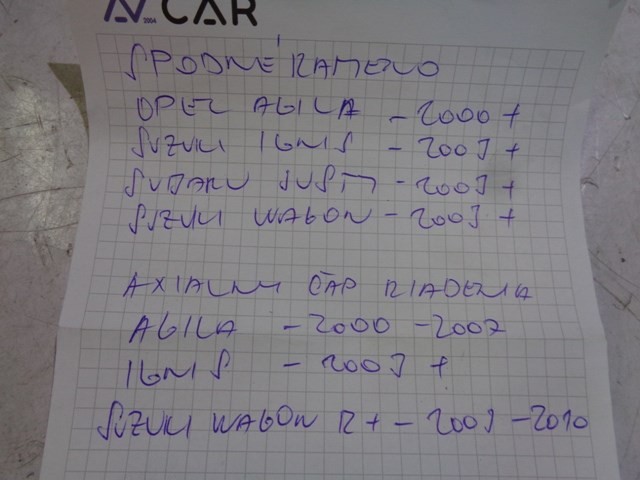 CAR
SPODNÉ RAMENO
OPEL AGILA - 2000 +
SUZUKI IGNIS - 2003 +
SUBARU JUSTY - 2003 +
SUZUKI WAGON - 2003 +
AXIALNY ČAP RIADENIA
AGILA - 2000 - 2007
IGNIS - 2003 +
SUZUKI WAGON R + - 2003 - 2010